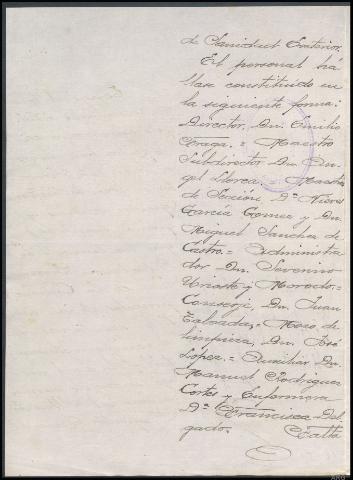 de Sanidad Exterior.
El personal há
llase constituído en
la siguiente forma:
Director, Dn. Emilio
Fraga.= Maestro
Subdirector Dn. An-
gel Llorca.= Maestros
de Sección, Dª Nieves
García Gomez y Dn.
Miguel Sanchez de
Castro.= Administra
dor Dn. Severino
Uriarte y Morado.=
Conserje, Dn. Juan
Taboada,= Mozo de
limpieza, Dn. José
López.= Auxiliar Dn.
Manuel Rodriguez
Cortes y Enfermera
Dª Francisca Del
gado. Falta